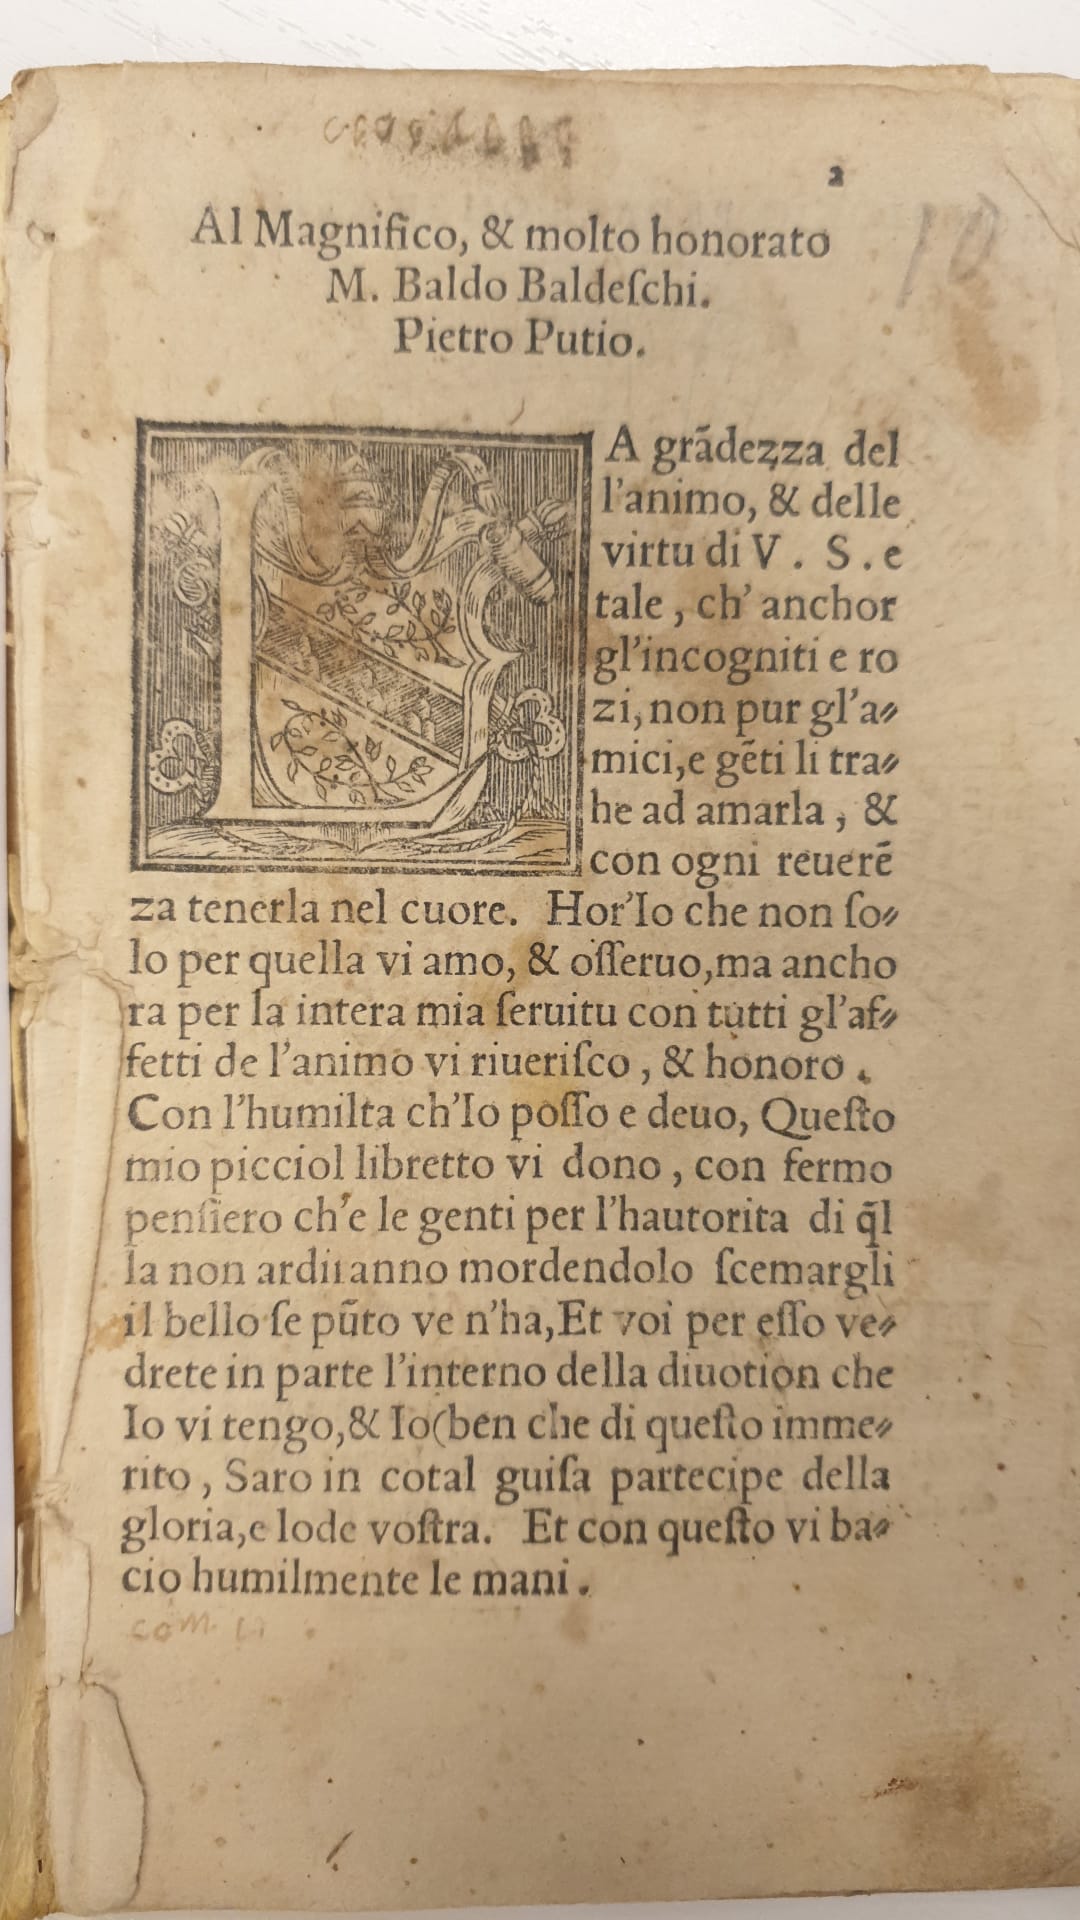 2
10
Al Magnifico, & molto honorato
M. Baldo Baldeſchi.
Pietro Putio.
LA grãdezza del
l'animo, & delle
virtu di V. S. e
tale, ch' anchor
gl'incogniti e ro
zi, non pur gl'a⸗
mici, e gẽti li tra⸗
he ad amarla, &
con ogni reuerẽ
za tenerla nel cuore. Hor'Io che non ſo⸗
lo per quella vi amo, & oſſeruo, ma ancho
ra per la intera mia ſeruitu con tutti gl'af⸗
fetti de l'animo vi riueriſco, & honoro.
Con l'humilta ch'Io poſſo e deuo, Queſto
mio picciol libretto vi dono, con fermo
penſiero ch'e le genti per l'hautorita di q̃l
la non ardiranno mordendolo ſcemargli
il bello ſe pũto ve n'ha, Et voi per eſſo ve⸗
drete in parte l'interno della diuotion che
Io vi tengo, & Io (ben che di queſto imme⸗
rito, Saro in cotal guiſa partecipe della
gloria, e lode voſtra. Et con queſto vi ba⸗
cio humilmente le mani.